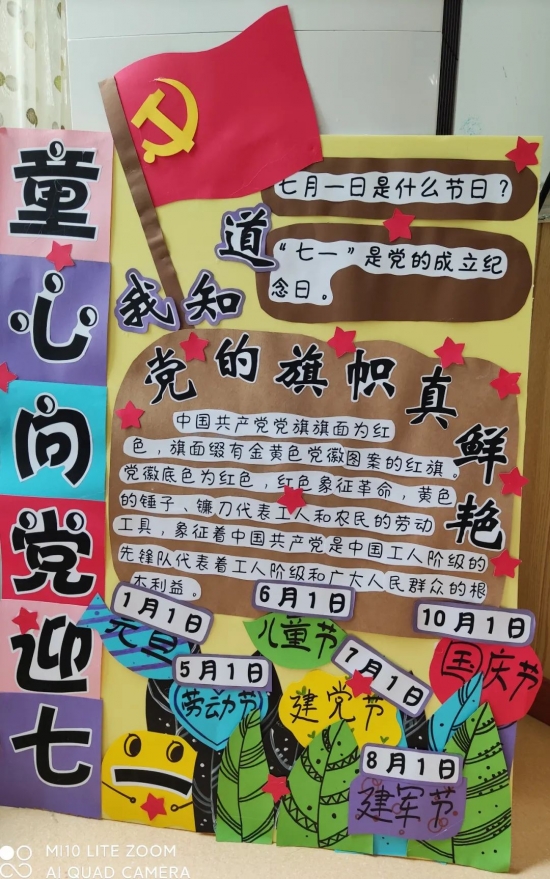 童心向党迎七一
我知道
七月一日是什么节日？
“七一”是党的成立纪
念日。
党的旗帜真鲜艳
中国共产党党旗旗面为红
色，旗面缀有金黄色党徽图案的红旗。
党徽底色为红色，红色象征革命，黄色
的锤子、镰刀代表工人和农民的劳动
工具，象征着中国共产党是中国工人阶级的
先锋队代表着工人阶级和广大人民群众的根
本利益。
1月1日
元旦
5月1日
劳动节
6月1日
儿童节
7月1日
建党节
8月1日
建军节
10月1日
国庆节
MI10 LITE ZOOM
AI QUAD CAMERA